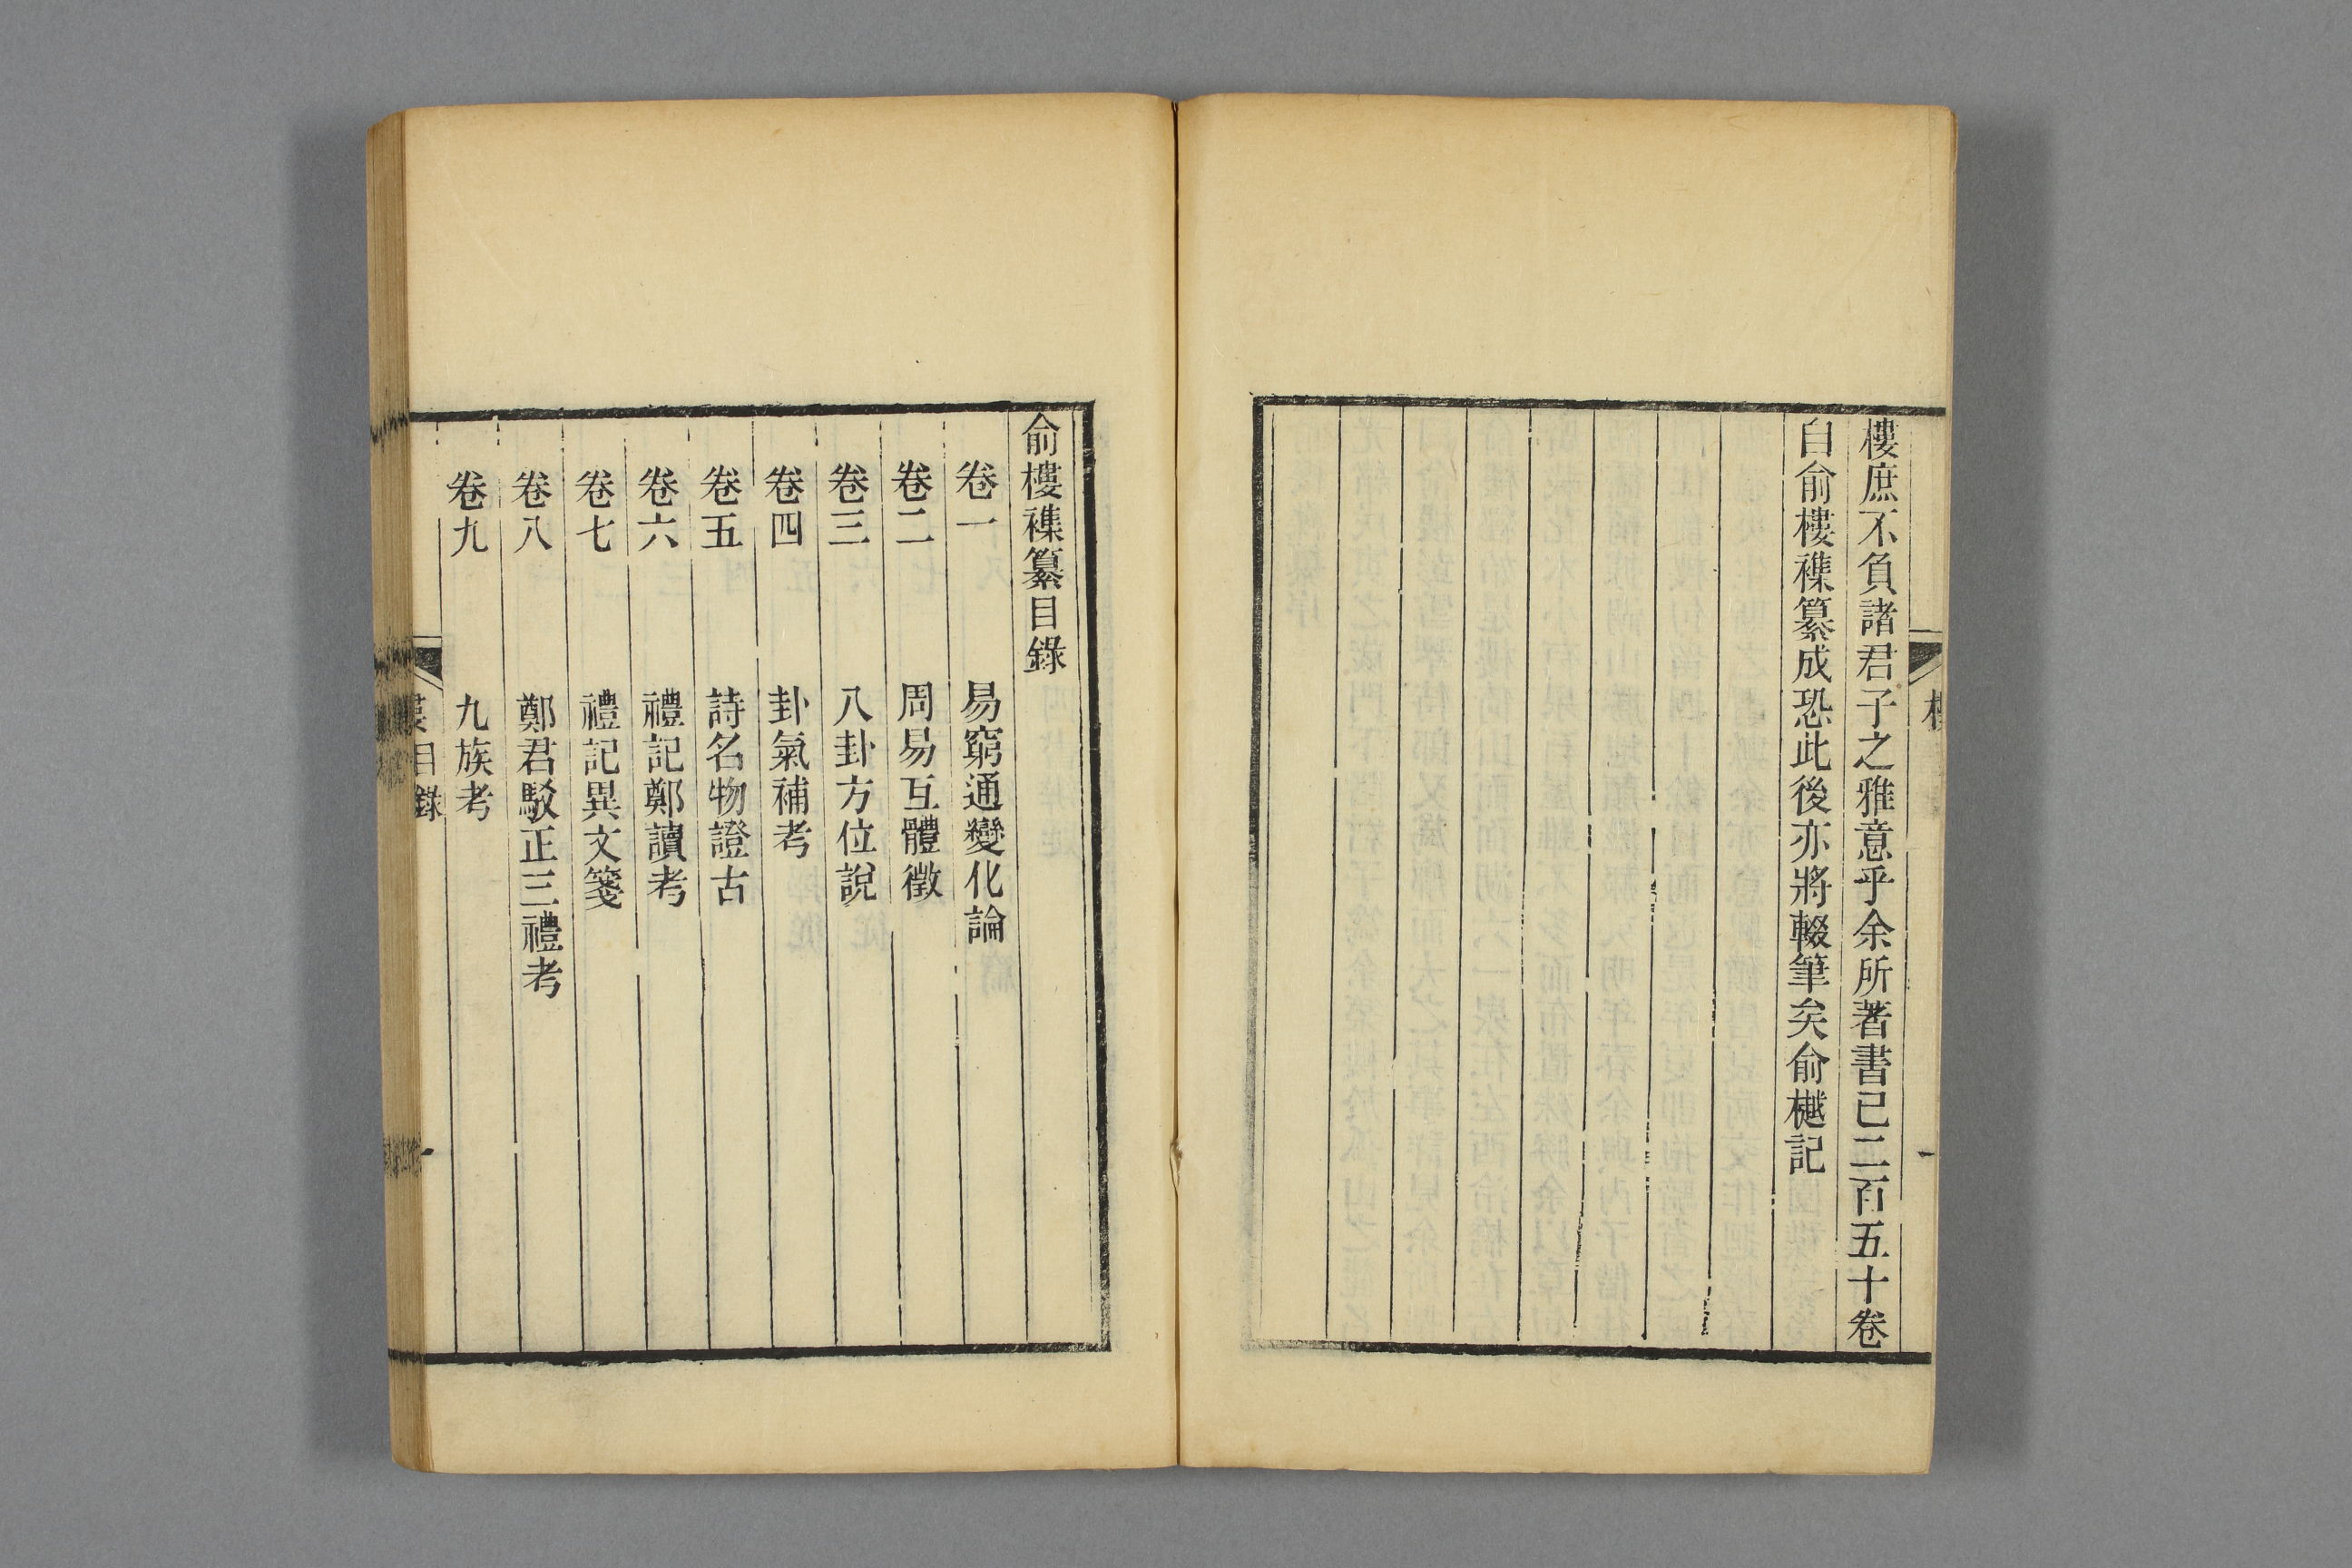 樓庶不負諸君子之雅意乎余所著書已二百五十卷
自俞樓襍纂成恐此後亦將輟筆矣俞樾記
俞樓襍纂目錄
卷一 易窮通變化論
卷二 周易互體徵
卷三 八卦方位說
卷四 卦氣補考
卷五 詩名物證古
卷六 禮記鄭讀考
卷七 禮記異文箋
卷八 鄭君駁正三禮考
卷九 九族考
目錄